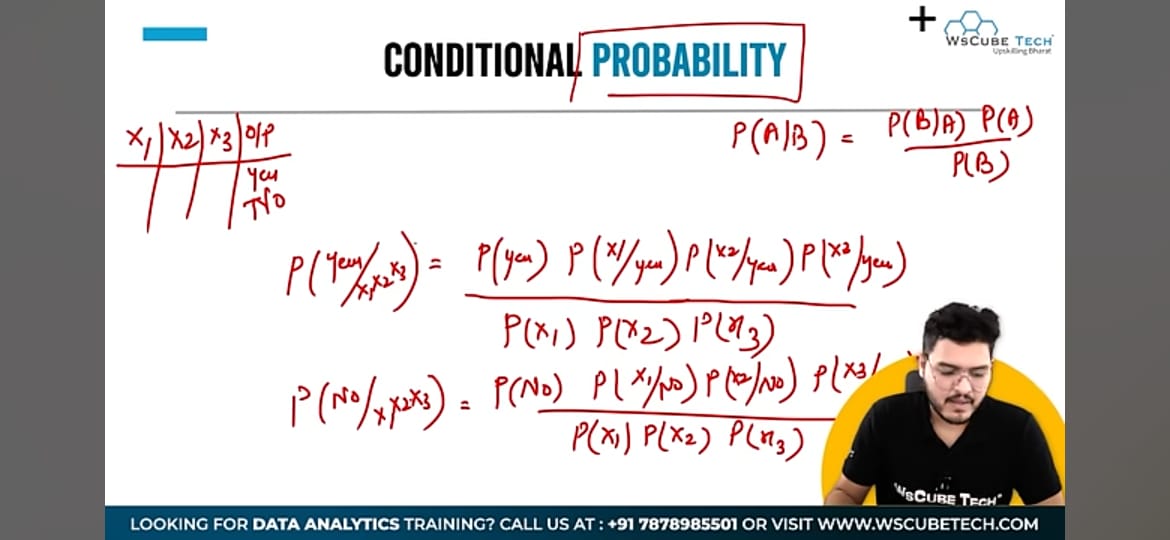 +
WsCUBE TECH
Upskilling Bharat
CONDITIONAL PROBABILITY
x1 | x2 | x3 | O/P
Yes
NO
P(A/B) = P(B/A) P(A)
P(B)
P(Yes/x1x2x3) = P(yes) P(x1/yes) P(x2/yes) P(x3/yes)
P(x1) P(x2) P(x3)
P(NO/x1x2x3) = P(NO) P(x1/NO) P(x2/NO) P(x3/
P(x1) P(x2) P(x3)
WSCUBE TECH
LOOKING FOR DATA ANALYTICS TRAINING? CALL US AT : +91 7878985501 OR VISIT WWW.WSCUBETECH.COM